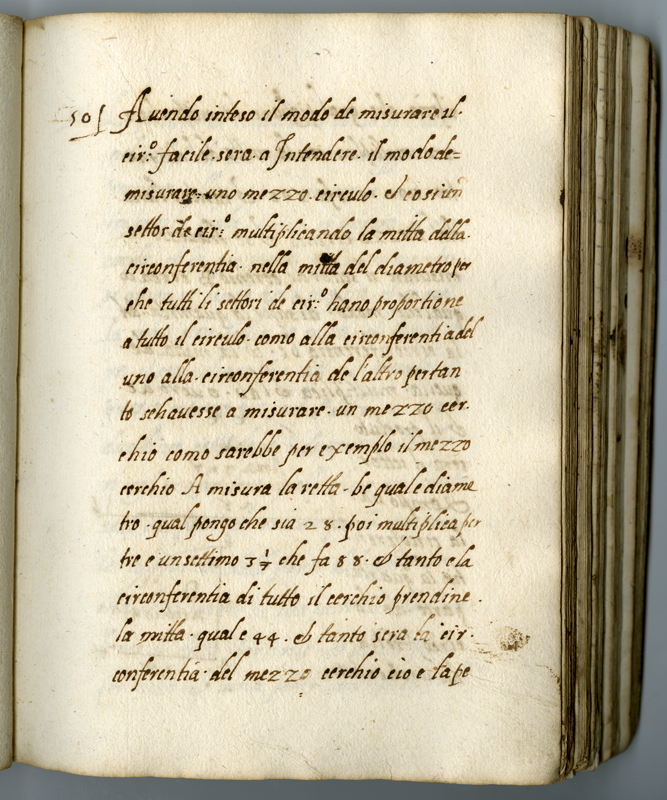 50 Avendo inteso il modo de misurare il.
cir:º facile. sera. a Intendere. il modo de=
misurare. uno mezzo. circulo. & cosi un
settor de cir: multiplicando la mitta della.
circonferentia. nella mitta del diametro per
che tutti li settori de cir:º hano proportione
a tutto il circulo. como alla circonferentia del
uno alla. circonferentia de l'altro pertan
to sehavesse a misurare. un mezzo cer.
chio como sarebbe per exemplo il mezzo
cerchio A misura la retta. be quale diame
tro. qual pongo che sia 28. poi multiplica per
tre e un settimo 3 1/7 che fa 88. & tanto e la
circonferentia di tutto il cerchio prendine.
la mitta. qual e 44. & tanto sera la cir.
conferentia. del mezzo cerchio cio e la pe